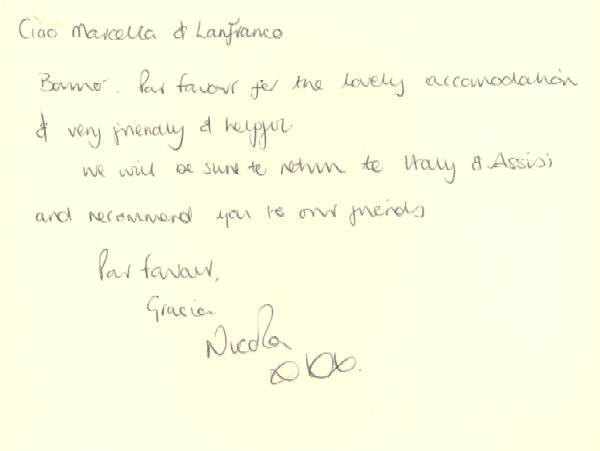 Ciao Marcella & Lanfranco
Par favour for the lovely accomodation
& very friendly & helpful.
We will be sure to return to Italy & Assisi
and recommend you to our friends
Par favour,
Gracia
Nicola